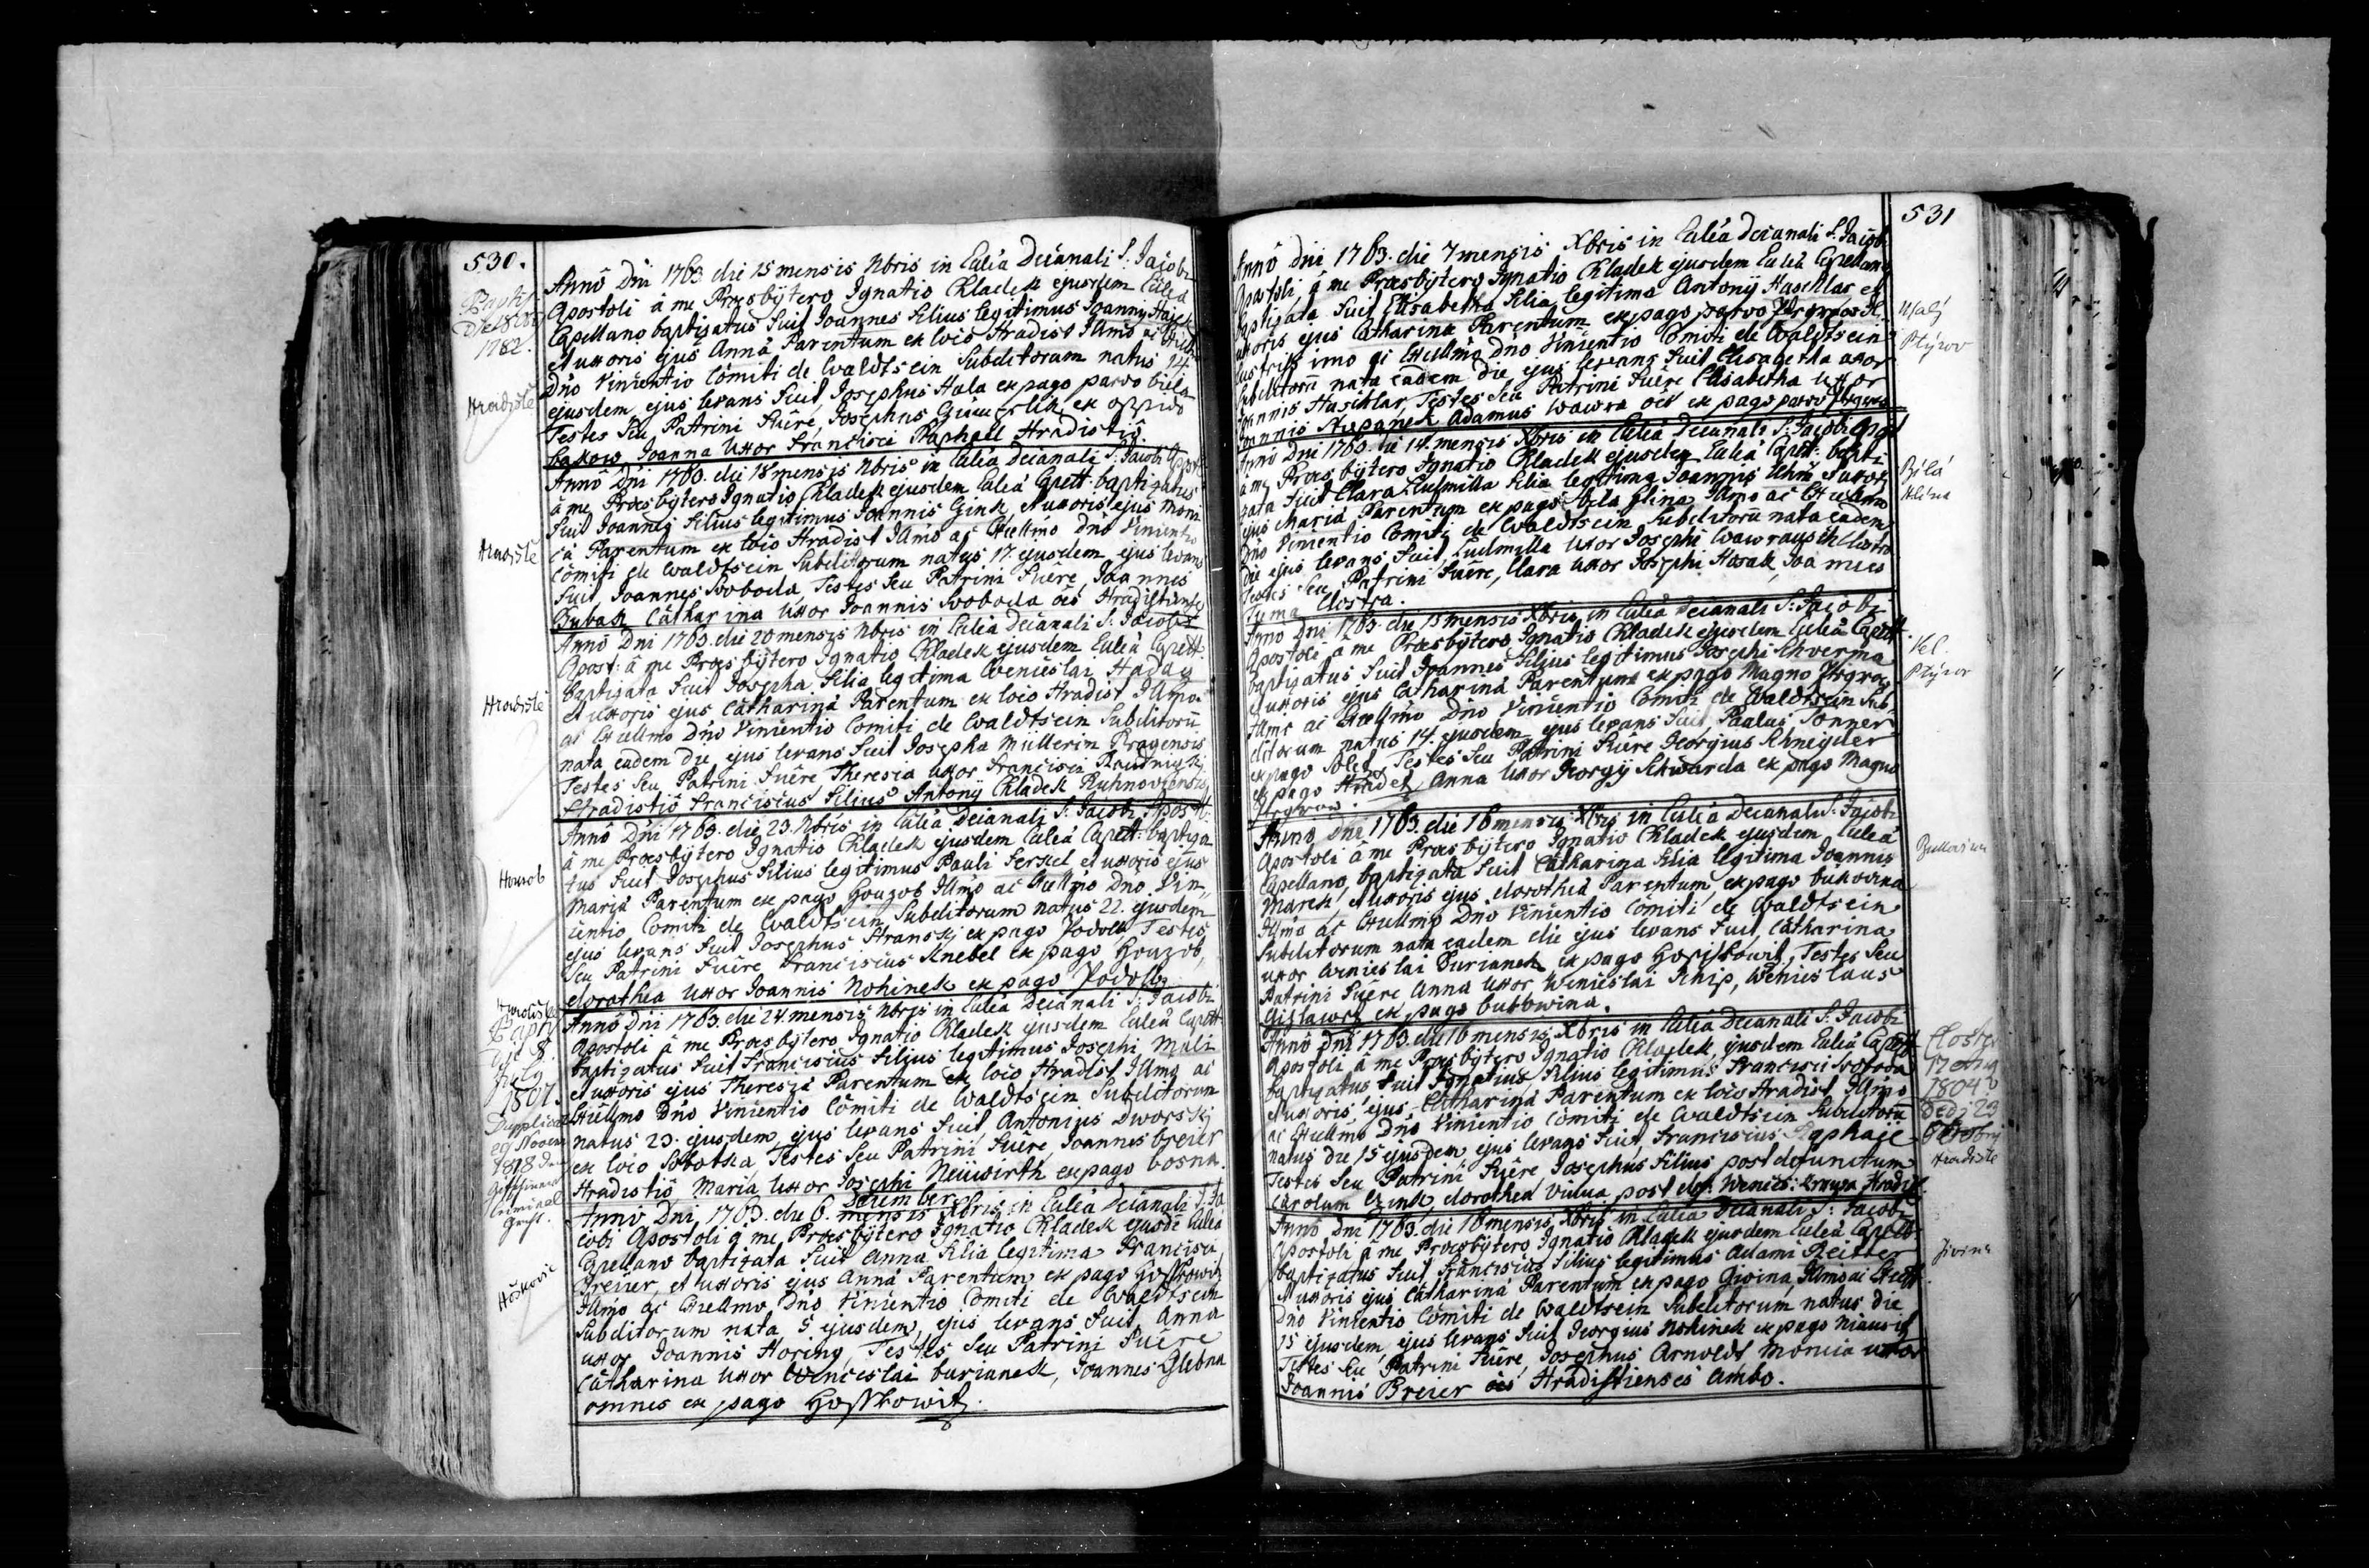 530.
Annô Dni 1763. die 15 mensis Nbris in Eulia Decanali S: Jacobi
Apostoli â me Praesbÿtero Ignatio Chladek ejusdem Eulea
Capellano baptizatus Fuit Joannes Filius legitimus Joannis
et uxoris ejus Anna Parentum ex loco Hradist Illmo ac
Dño Vincentio Comiti de Waldtsein Subditorum natus 14.
ejusdem, ejus levans Fuit, Josephus Hala ex pago parvo biela
Testes Seu Patrini Fuêre, Josephus ex oppido
bakow Joanna Uxor Francisci Raphael Hradistiô.
1782.
Hradiště
Annô Dni 1763. die 18 mensis Nbris in Eulia Decanali S: Jacobi Apost:
â me Praesbytero Ignatio Chladek ejusdem Eulea Capell: baptizatus
Fuit Joannes Filius legitimus Joannis Gink, et uxoris ejus Moni
ca Parentum ex loco Hradist Illmo ac Excellmo Dño Vincentio
Comiti de Waldtsein Subditorum natus 17 ejusdem, ejus levans
Fuit, Joannes Swoboda, Testes Seu Patrini Fuêre, Joannes
Bubak Catharina Uxor Joannis Swoboda oes Hradistienses
Hradiště
Annô Dni 1763. die 20 mensis Nbris in Eulia Decanali S: Jacobi
Apost: â me Praesbÿtero Ignatio Chladek ejusdem Eulea Capell:
baptizata Fuit Josepha Filia legitima Wenceslai
et uxoris ejus Catharina Parentum ex loco Hradist Illmo
ac Excellmo Dño Vincentio Comiti de Waldtsein Subditorū
nata eadem die ejus levans Fuit Josepha Müllerin Pragensis
Testes Seu Patrini Fuêre Theresia Uxor Francisci
Hradistiô Franciscus Filius Antonÿ Chladek
Hradiště
Annô Dni 1763. die 23. Nbris in Eulia Decanali S: Jacobi Apost:
â me Praesbÿtero Ignatio Chladek ejusdem Eulea Capell: baptiza
tus Fuit Josephus Filius legitimus Pauli Ferskel et uxoris ejus
Maria Parentum ex pago Houzob Illmo ac Excellmo Dño Vin
centio Comiti de Waldtsein Subditorum natus 22. ejusdem
ejus levans Fuit Josephus Stranskj ex pago Podoll, Testes
Seu Patrini Fuêre Franciscus Knebel ex pago Houzob,
dorothea Uxor Joannis Nohinek ex pago Podoll
Annô Dni 1763. die 24. mensis Nbris in Eulia Decanali S: Jacobi
Apostoli â me Praesbÿtero Ignatio Chladek ejusdem Eulea Capell:
baptizatus Fuit Franciscus Filius legitimus Josephi
et uxoris ejus Theresia Parentum ex loco Hradist Illmo ac
Excellmo Dño Vincentio Comiti de Waldtsein Subditorum
natus 23. ejusdem, ejus levans Fuit Antonius Dworskj
ex loco Sobotka, Testes Seu Patrini Fuêre, Joannes breier
Hradistiô, Maria Uxor Josephi Neüwirth ex pago bosna.
Hradiště
1807.
1818
december
Annô Dni 1763. die 6. mensis Xbris in Eulia Decanali S: Ja
cobi Apostoli â me, Praesbÿtero Ignatio Chladek ejusdē Eulea
Capellano baptizata Fuit Anna Filia legitima Francisci
Breüer, et uxoris ejus Anna Parentum ex pago Hosskowitz
Illmo ac Excellmo Dño Vincentio Comiti de Waldtsein
Subditorum nata 5 ejusdem, ejus levans Fuit Anna
uxor Joannis Horing, Testes Seu Patrini Fuêre
Catharina Uxor Wenceslai burianek, Joannes Glebna
omnes ex pago Hosskowitz.
Hoškovic
531
Annô Dni 1763. die 7 mensis Xbris in Eulia Decanali S. Jacobi
Apostoli, â me Praesbÿtero Ignatio Chladek ejusdem Eulea Capellano
baptizata Fuit Elisabetha Filia legitima Antonÿ Haschlar et
uxoris ejus Catharina Parentum ex pago parvo
lustrissimo ac Excellmo Dño Vincentio Comiti de Waldtsein
Subditorū nata eadem die ejus levans Fuit Elisabetha uxor
Joannis Haschlar, Testes Seu Patrini Fuêre Elisabetha Uxor
Joannis Stepanek Adamus Wawra oes ex pago parvo
Malý
Ptýrov
Annô Dni 1763. die 14. mensis Xbris in Eulia Decanali S: Jacobi Apost
â me Praesbÿtero Ignatio Chladek ejusdem Eulea Capell: bapti
zata Fuit Clara Ludmilla Filia legitima Joannis et uxoris
ejus Maria Parentum ex pago bila Hlina Illmo ac Excellmo
Dño Vincentio Comiti de Waldtsein Subditorū nata eadem
die ejus levans Fuit Ludmilla Uxor Josephi
Testes Seu Patrini Fuêre, Clara Uxor Josephi Husak, Joannes
Tuma Clostra.
Bílá
Hlína
Anno Dni 1763. die 15 mensis Xbris in Eulia Decanali S: Jacobi
Apostoli â me Praesbÿtero Ignatio Chladek ejusdem Eulea Capell:
baptizatus Fuit Joannes Filius legitimus Josephi
et uxoris ejus Catharina Parentum ex pago Magno
Illmo ac Excellmo Dño Vincentio Comiti de Waldtsein Sub
ditorum natus 14. ejusdem, ejus levans Fuit Paulus Sonner
ex pago Solez, Testes Seu Patrini Fuêre Georgius Schneyder
ex pago Hradez, Anna Uxor Georgÿ Schwarda ex pago Magno
Vel.
Ptýrov
Anno Dni 1763. die 16 mensis Xbris in Eulia Decanali S: Jacobi
Apostoli â me Praesbÿtero Ignatio Chladek ejusdem Eulea
Capellano, baptizata Fuit Catharina Filia legitima Joannis
Marek, et uxoris ejus dorothea Parentum, ex pago bukowina
Illmo ac Excellmo Dño Vincentio Comiti de Waldtsein
Subditorum nata eadem die ejus levans Fuit, Catharina
uxor Wenceslai Burianek ex pago Hosskowitz, Testes Seu
Patrini Fuêre Anna Uxor Wenceslai Wenceslaus
ex pago bukowina.
Bukovina
Annô Dni 1763. die 16 mensis Xbris in Eulia Decanali S: Jacobi
Apostoli â me Praesbÿtero Ignatio Chladek, ejusdem Eulea Capell:
baptizatus Fuit Ignatius Filius legitimus Francisci Swoboda
et uxoris ejus Catharina Parentum ex loco Hradist Illmo
ac Excellmo Dño Vincentio Comiti de Waldtsein Subditorū
natus die 15 ejusdem, ejus levans Fuit, Franciscus
Testes Seu Patrini Fuêre Josephus Filius post defunctum
Carolum Czink, dorothea Vidua post def: Wences:
1804
Hradiště
Annô Dni 1763. die 16 mensis Xbris in Eulia Decanali S: Jacobi
Apostoli â me Praesbÿtero Ignatio Chladek ejusdem Eulea Capell:
baptizatus Fuit Franciscus Filius legitimus Adami Reitter
et uxoris ejus Catharina Parentum ex pago Givina, Illmo ac Excell
Dño Vincentio Comiti de Waldtsein Subditorum, natus die
15 ejusdem, ejus levans Fuit Georgius Nohinek ex pago
Testes Seu Patrini Fuêre, Josephus Arnoldt Monica uxor
Joannis Breier oes Hradistienses ambo.
Jivina